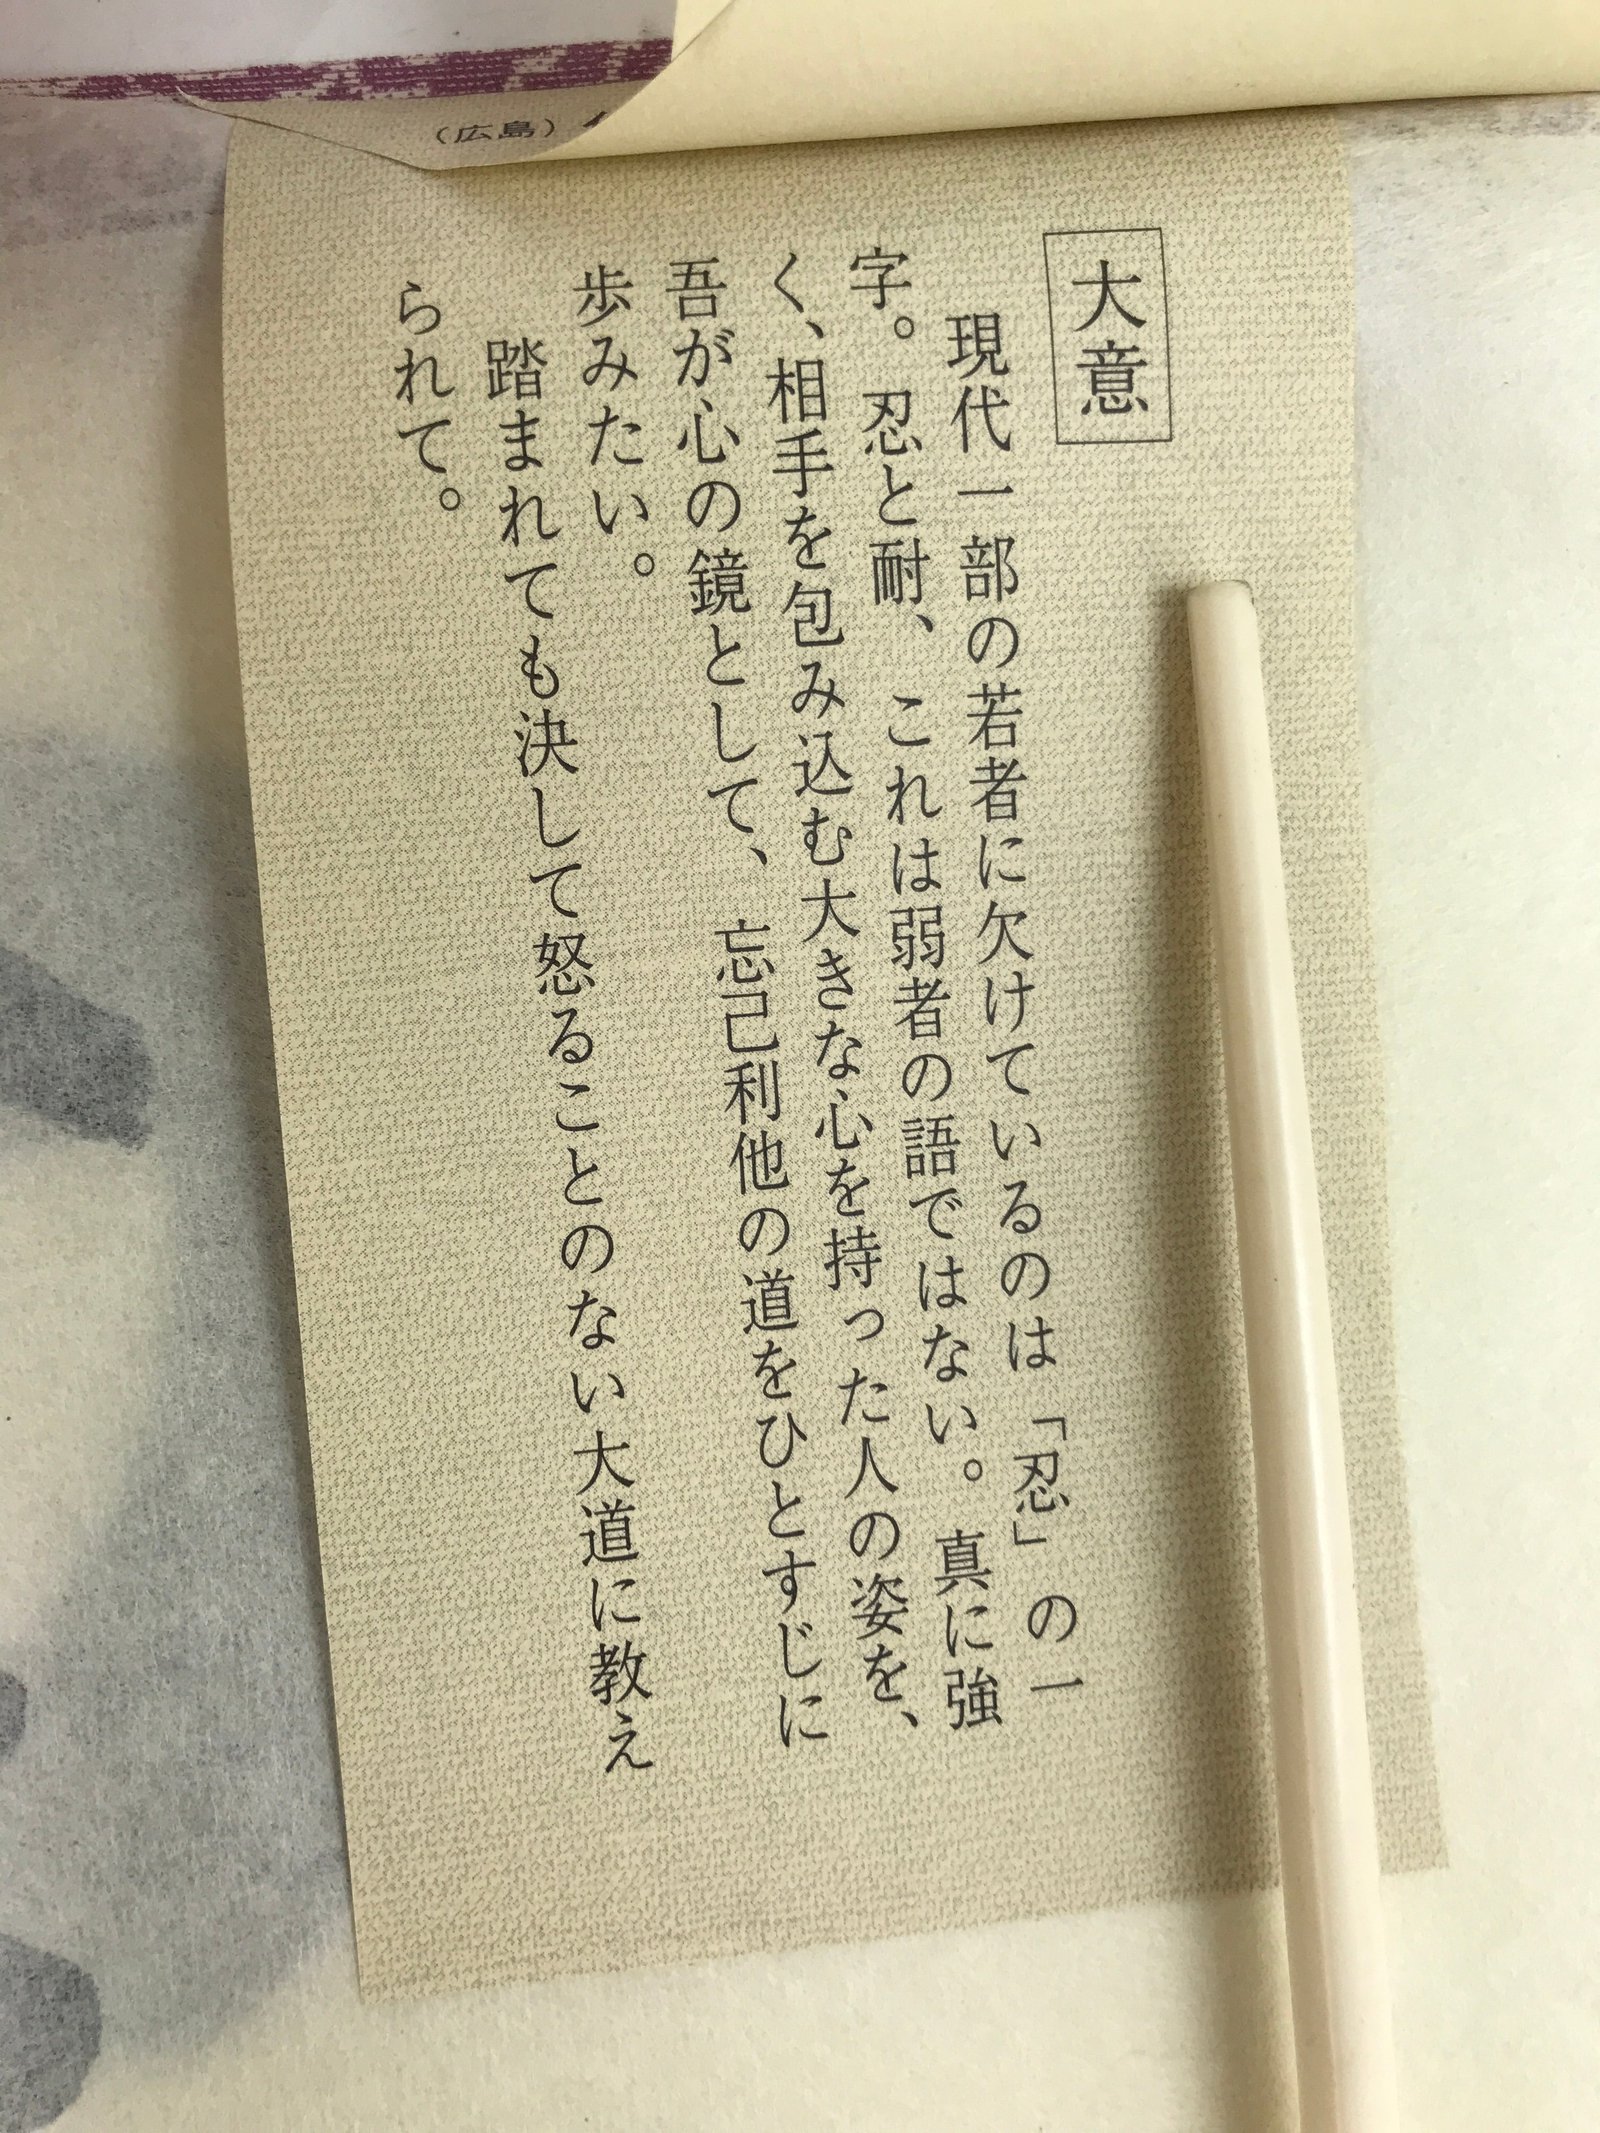 大意
現代一部の若者に欠けているのは「忍」の一
字。忍と耐、これは弱者の語ではない。真に強
く、相手を包み込む大きな心を持った人の姿を、
吾が心の鏡として、忘己利他の道をひとすじに
歩みたい。
踏まれても決して怒ることのない大道に教え
られて。
(広島)